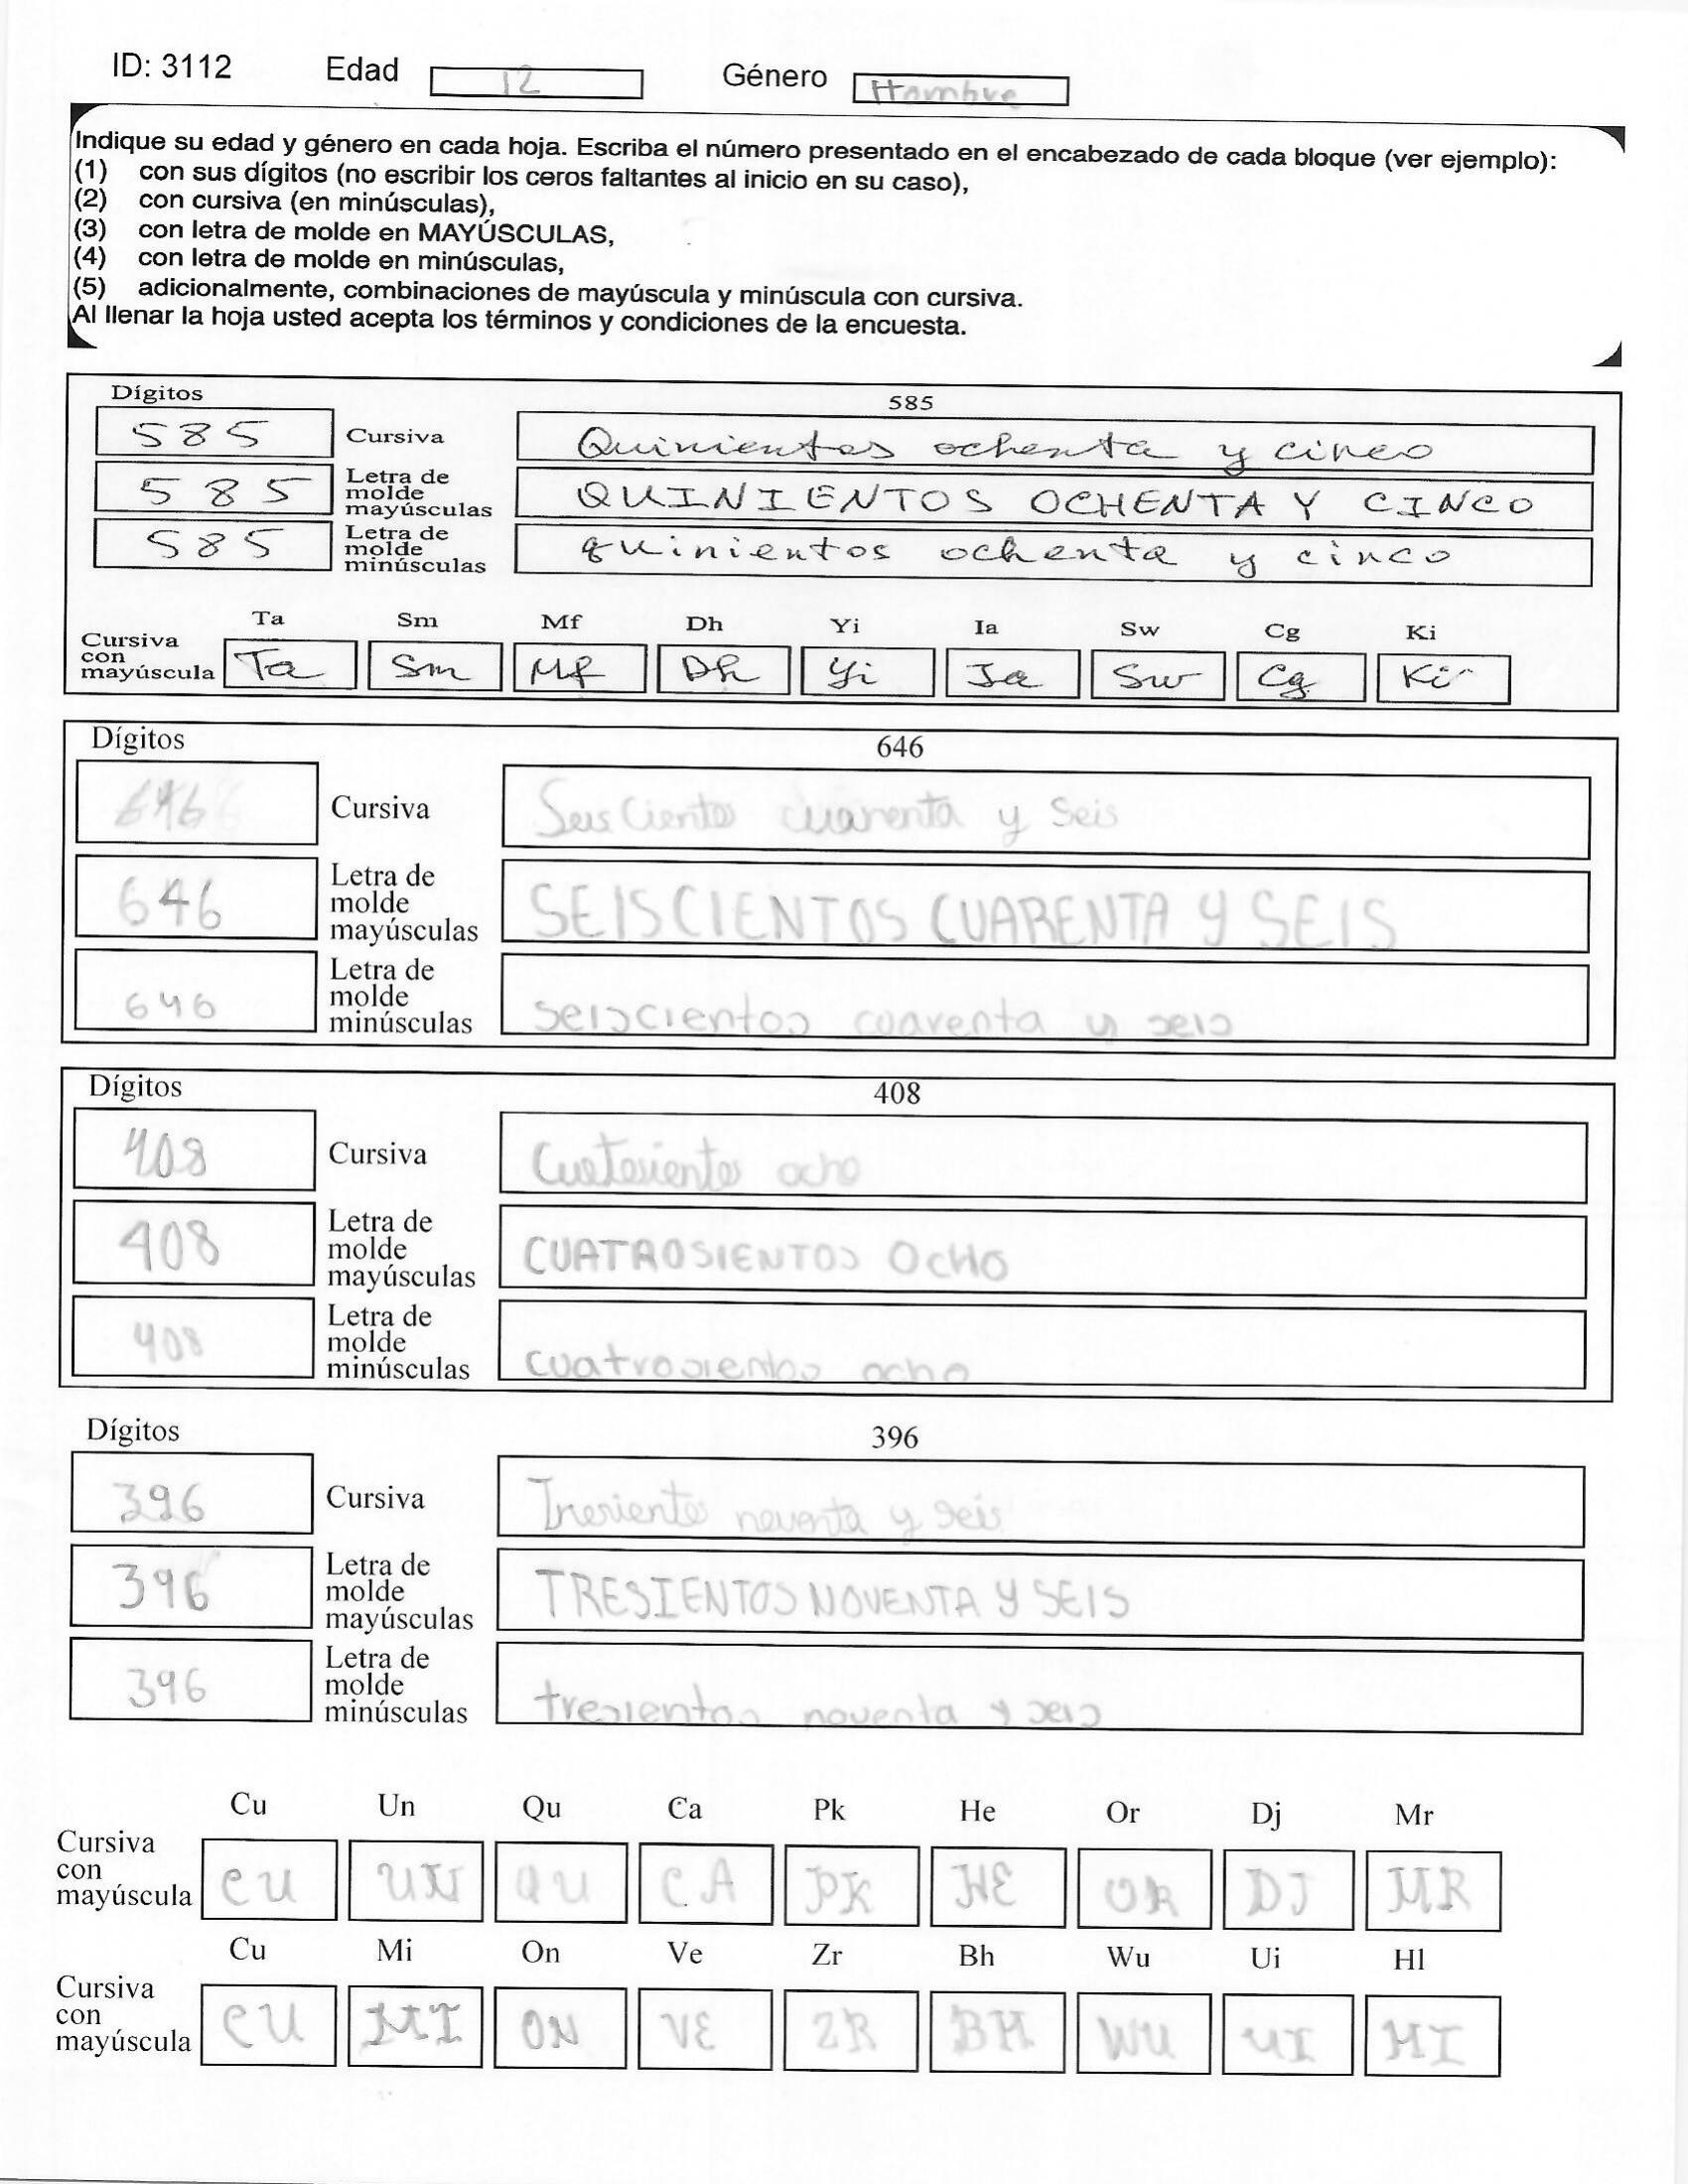 ID: 3112 Edad 12 Género Hombre
Indique su edad y género en cada hoja. Escriba el número presentado en el encabezado de cada bloque (ver ejemplo):
(1) con sus dígitos (no escribir los ceros faltantes al inicio en su caso),
(2) con cursiva (en minúsculas),
(3) con letra de molde en MAYÚSCULAS,
(4) con letra de molde en minúsculas,
(5) adicionalmente, combinaciones de mayúscula y minúscula con cursiva.
Al llenar la hoja usted acepta los términos y condiciones de la encuesta.
Dígitos 585
585 Cursiva Quinientos ochenta y cinco
585 Letra de molde mayúsculas QUINIENTOS OCHENTA Y CINCO
585 Letra de molde minúsculas quinientos ochenta y cinco
Ta Sm Mf Dh Yi Ia Sw Cg Ki
Cursiva con mayúscula Ta Sm Mf Dh Yi Ia Sw Cg Ki
Dígitos 646
646 Cursiva Seis Cientos cuarenta y Seis
646 Letra de molde mayúsculas SEISCIENTOS CUARENTA Y SEIS
646 Letra de molde minúsculas seiscientos cuarenta y seis
Dígitos 408
408 Cursiva ocho
408 Letra de molde mayúsculas CUATROSIENTOS OCHO
408 Letra de molde minúsculas cuatrosientos ocho
Dígitos 396
396 Cursiva y seis
396 Letra de molde mayúsculas TRESIENTOS NOVENTA Y SEIS
396 Letra de molde minúsculas tresientos noventa y seis
Cu Un Qu Ca Pk He Or Dj Mr
Cursiva con mayúscula CU UN QU CA PK HE OR DJ MR
Cu Mi On Ve Zr Bh Wu Ui Hl
Cursiva con mayúscula CU MI ON VE ZR BH WU UI HI